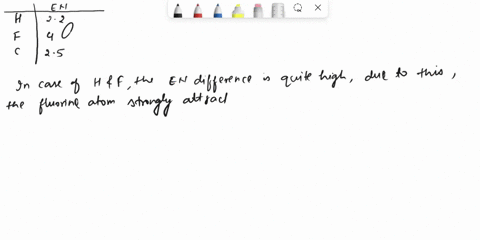 EN
H 2.2
F 4.0
C 2.5
In case of H & F, the EN difference is quite high, due to this,
the fluorine atom strongly attract